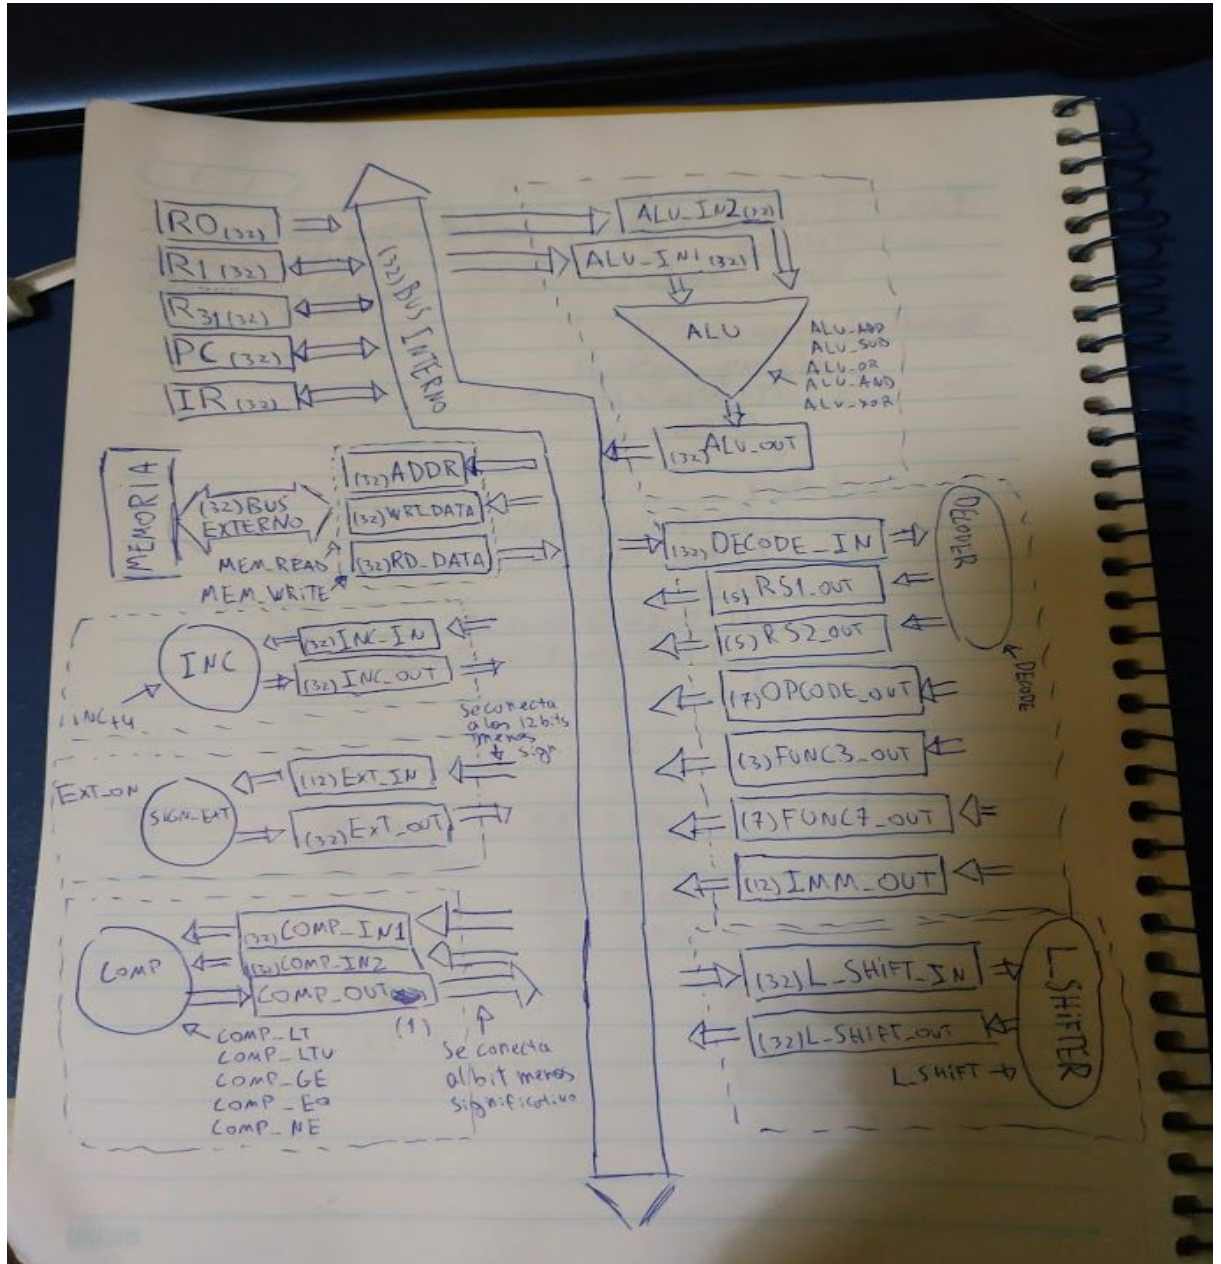 R0(32)
R1(32)
R31(32)
PC(32)
IR(32)
(32)BUS INTERNO
ALU_IN2(32)
ALU_IN1(32)
ALU
ALU_ADD
ALU_SUB
ALU_OR
ALU_AND
ALU_XOR
(32)ALU_OUT
MEMORIA
(32)BUS
EXTERNO
(32)ADDR
(32)WRT_DATA
(32)RD_DATA
MEM_READ
MEM_WRITE
INC
(32)INC_IN
(32)INC_OUT
INC+4
Se conecta
a los 12 bits
menos
sign
EXT_ON
SIGN_EXT
(12)EXT_IN
(32)EXT_OUT
COMP
(32)COMP_IN1
(32)COMP_IN2
COMP_OUT
(1)
COMP_LT
COMP_LTU
COMP_GE
COMP_EQ
COMP_NE
Se conecta
al bit menos
significativo
(32)DECODE_IN
DECODER
(5)RS1_OUT
(5)RS2_OUT
DECODE
(7)OPCODE_OUT
(3)FUNC3_OUT
(7)FUNC7_OUT
(12)IMM_OUT
(32)L_SHIFT_IN
(32)L_SHIFT_OUT
L_SHIFTER
L_SHIFT